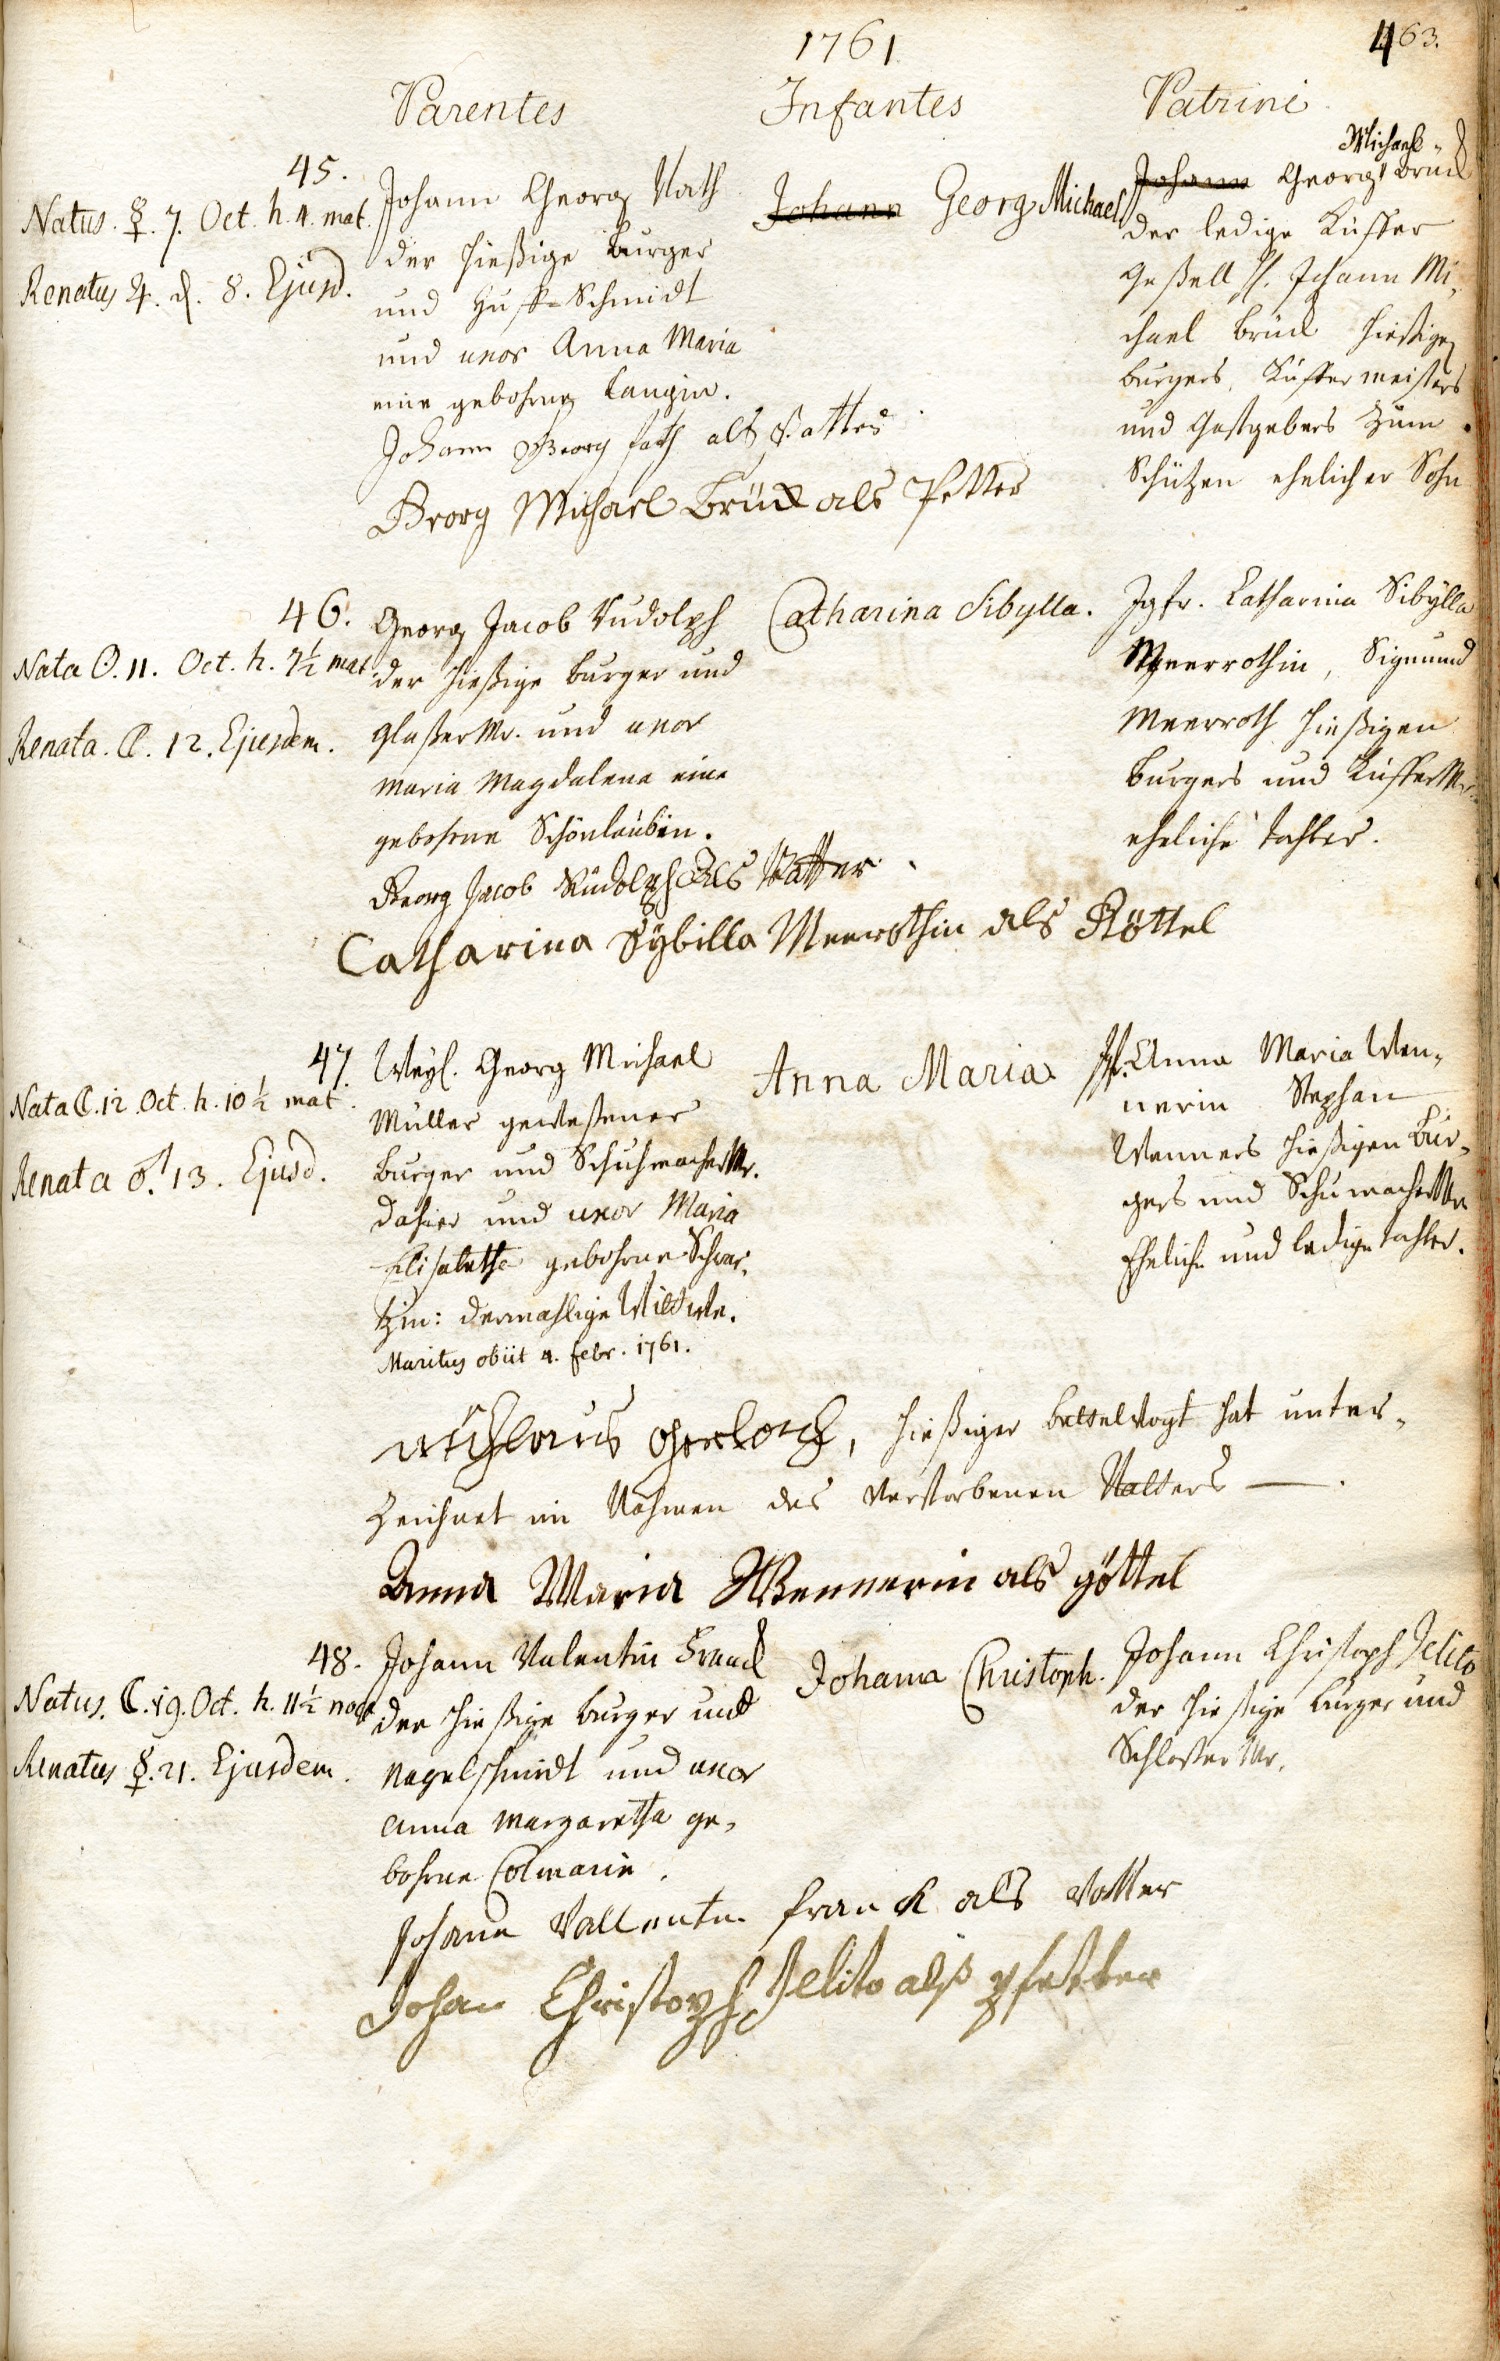 1761.
463.
Parentes
Infantes
Patrini
45.
Natus. ☿. 7. Oct. h. 4. mat.
Renatus ♃. d. 8. Ejusd.
Johann Georg Vath
der hießige burger
und Huff-Schmidt
und uxor Anna Maria
eine gebohrne Langin.
Johann Georg fath als Vatter
Georg Michael Brück als Petter
Johann Georg Michael
Michael
Johann Georg Brück
der ledige Küffer
Gesell, Johann Mi-
chael Brück hießigen
burgers, Küffer meisters
und Gastgebers zum
Schützen ehelicher Sohn
46.
Nata ☉. 11. Oct. h. 7½ mat.
Renata. ☾. 12. Ejusdem.
Georg Jacob Rudolph
der hießige burger und
glaßer Mr. und uxor
Maria Magdalena eine
gebohrne Schönlaubin.
Georg Jacob Rudolph Als Vatter
Catharina Sybilla Meerothin als Göttel
Catharina Sibylla.
Jgfr. Catharina Sibylla
Meerrothin, Sigmund
Meerroth hießigen
burgers und Küffer Mr.
eheliche tochter.
47.
Nata ☾. 12. Oct. h. 10½ mat.
Renata ♂. 13. Ejusd.
Weyl. Georg Michael
Müller gewesener
burger und Schuhmacher Mr.
dahier und uxor Maria
Elisabetha gebohrne Schwar-
tzin: dermahlige Wittwe.
Maritus obiit 4. febr. 1761.
Anna Maria
Anna Maria Wen-
nerin Stephan
Wenners hießigen Bur-
gers und Schumacher Mr.
Eheliche und ledige tochter.
Niclaus Gerlach, hießiger bettelvogt hat unter-
zeichnet im Nahmen des verstorbenen Vatters —.
Anna Maria Wennerin als göttel
48.
Natus. ☾. 19. Oct. h. 11½ noct.
Renatus ☿. 21. Ejusdem.
Johann Valentin Franck
der hießige burger und
Nagelschmidt und uxor
Anna Margaretha ge-
bohrne Colmarin.
Johann Vallentin franck als Vatter
Johan Christoph Jelito alß pfetter
Johann Christoph.
Johann Christoph Jelito
der hießige burger und
Schloßer Mr.